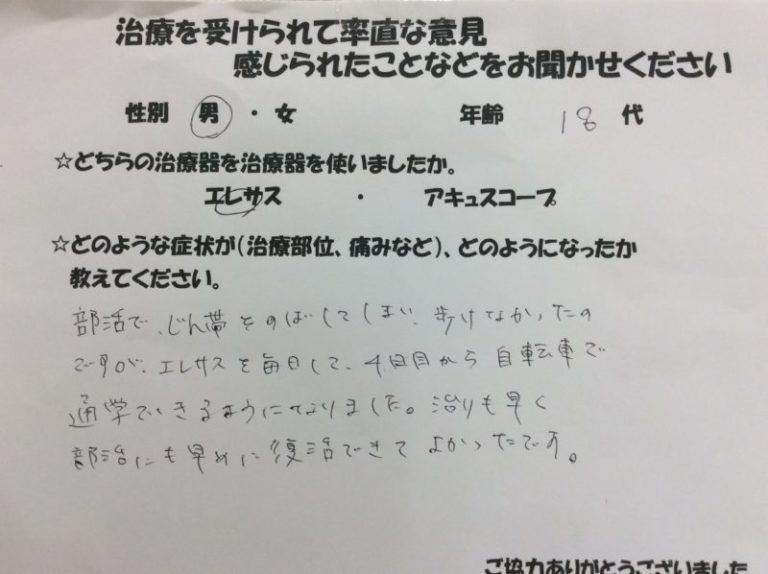 治療を受けられて率直な意見
感じられたことなどをお聞かせください
性別 男 ・ 女 年齢 18 代
☆どちらの治療器を治療器を使いましたか。
エレサス ・ アキュスコープ
☆どのような症状が(治療部位、痛みなど)、どのようになったか
教えてください。
部活で、じん帯をのばしてしまい、歩けなかったの
ですが、エレサスを毎日して、4日目から自転車で
通学できるようになりました。治りも早く
部活にも早めに復活できてよかったです。
ご協力ありがとうございました